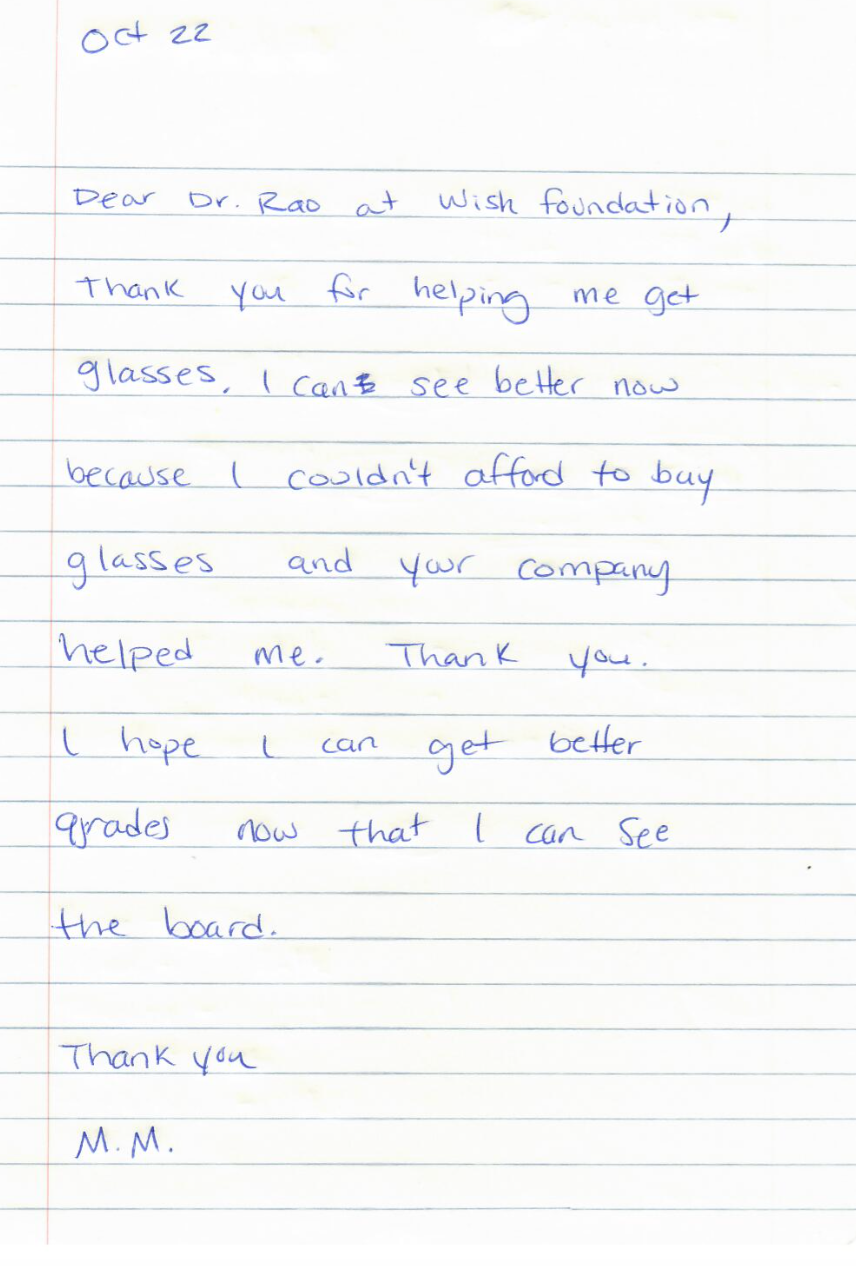 Oct 22
Dear Dr. Rao at Wish foundation,
Thank you for helping me get
glasses. I can see better now
because I couldn't afford to buy
glasses and your company
helped me. Thank you.
I hope I can get better
grades now that I can see
the board.
Thank you
M.M.